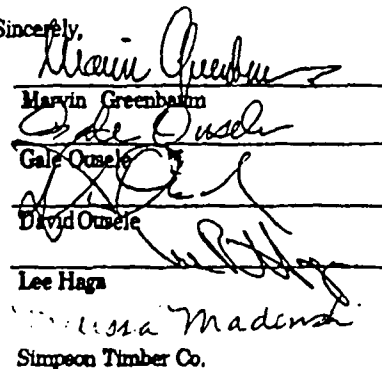 Sincerely,
Marvin Greenbaum
Marvin Greenbaum
Gale Ousele
Gale Ousele
David Ousele
Lee R Haga
Lee Haga
Madensi
Simpson Timber Co.